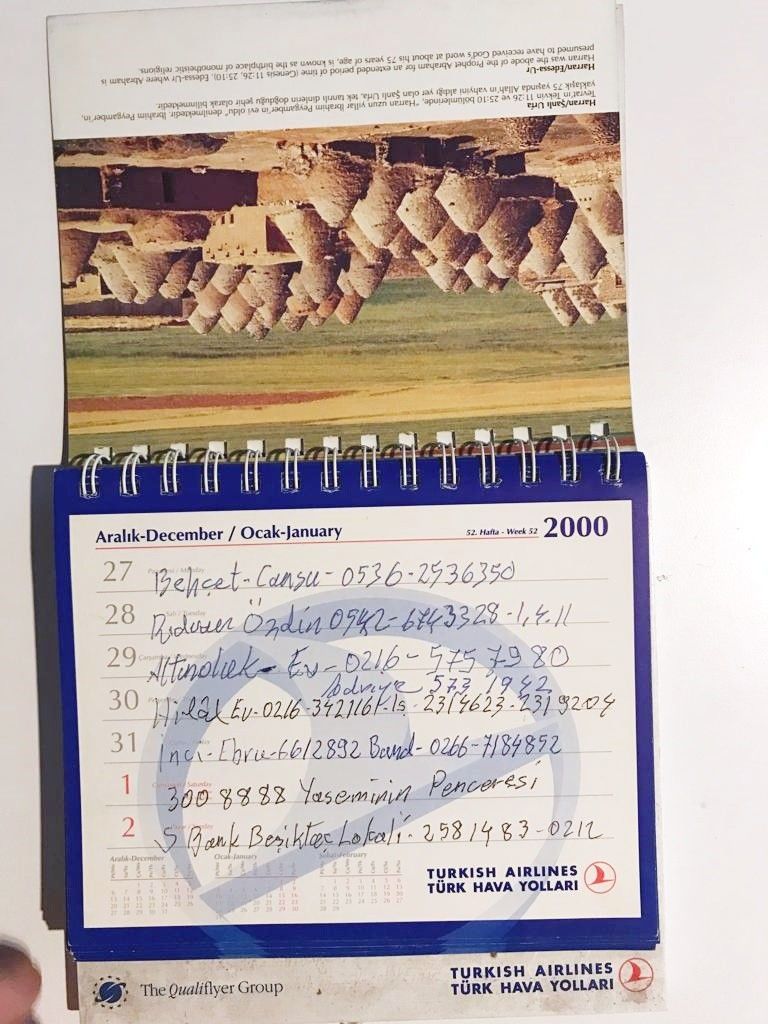 Harran/Şanlı Urfa
Tevrat'ın Tekvin 11:26 ve 25:10 bölümlerinde, "Harran uzun yıllar Peygamber İbrahim'in evi oldu" denilmektedir. İbrahim Peygamber'in,
yaklaşık 75 yaşında Allah'ın vahyini aldığı yer olan Şanlı Urfa, tek tanrılı dinlerin doğduğu şehir olarak bilinmektedir.
Harran/Edessa-Ur
Harran was the abode of the Prophet Abraham for an extended period of time (Genesis 11:26, 25:10). Edessa-Ur where Abraham is
presumed to have received God's word at about his 75 years of age, is known as the birthplace of monotheistic religions.
Aralık-December / Ocak-January 52. Hafta - Week 52 2000
27 Behçet-Cansu-0536-2536350
28 Özdin 0542-6743328-1,4.11
29 Altınoluk-Ev-0216-5757980
573 1942
30 Hilal Ev-0216-3421161-İş-2314623-2319204
31 İnci-Ebru-6612892 Band-0266-7184852
1 300 8888 Yaseminin Penceresi
2 Bank Beşiktaş Lokali-2581483-0212
Aralık-December Ocak-January Şubat-February
TURKISH AIRLINES
TÜRK HAVA YOLLARI
The Qualiflyer Group
TURKISH AIRLINES
TÜRK HAVA YOLLARI